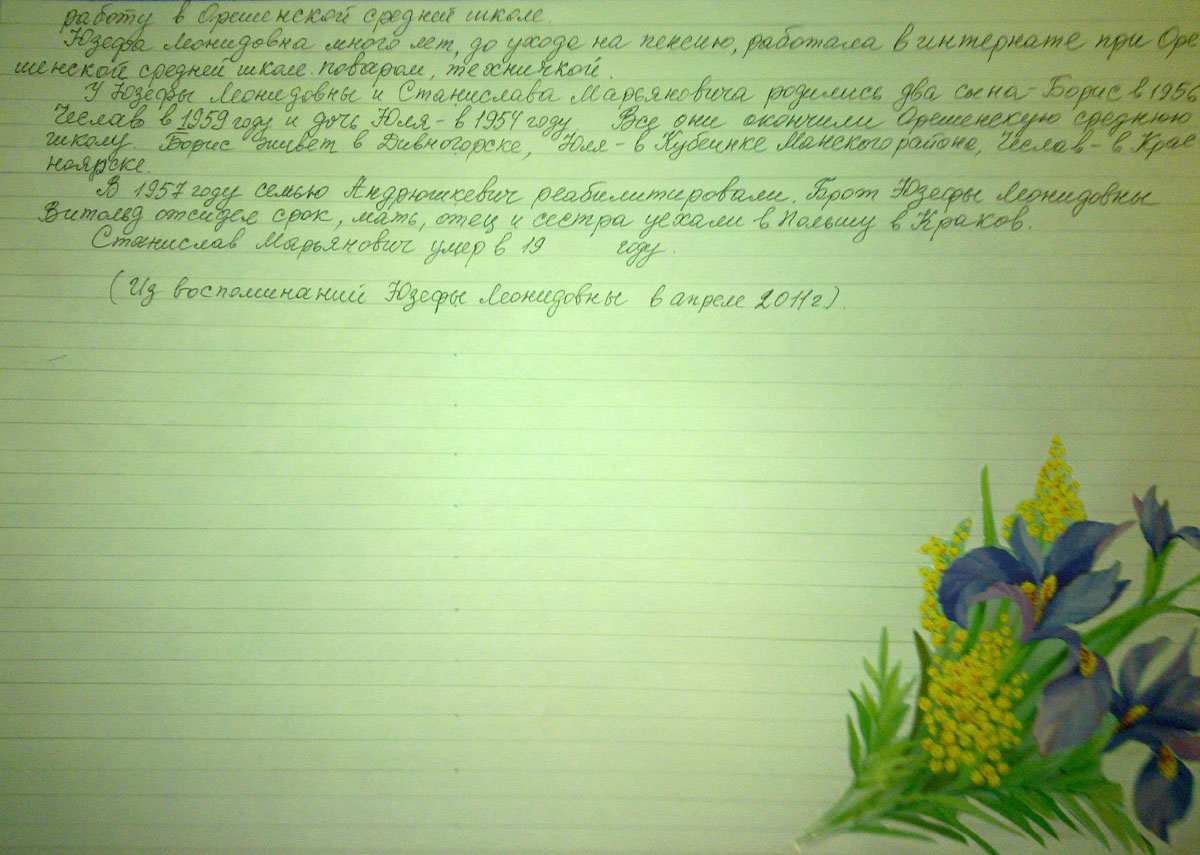 работу в Орешенской средней школе.
Юзефа Леонидовна много лет, до ухода на пенсию, работала в интернате при Оре-
шенской средней школе поваром, техничкой.
У Юзефы Леонидовны и Станислава Марьяновича родились два сына - Борис в 1956
Чеслав в 1959 году и дочь Юля - в 1954 году Все они окончили Орешенскую среднюю
школу. Борис живет в Дивногорске, Юля - в Кубеинке Манского района, Чеслав - в Крас
ноярске.
В 1957 году семью Андрюшкевич реабилитировали. Брат Юзефы Леонидовны
Витольд отсидел срок, мать, отец и сестра уехали в Польшу в Краков.
Станислав Марьянович умер в 19 году.
(Из воспоминаний Юзефы Леонидовны в апреле 2011г).